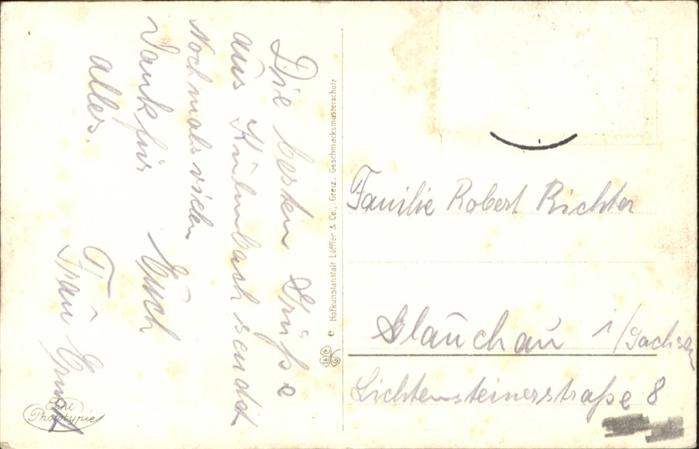 Die besten Grüße
aus Kulmbach sendet
Euch
Nochmals vielen
Dank für
alles.
Frau Ernst
e Hofkunstanstalt Löffler & Co., Greiz. Geschmacksmusterschutz
Familie Robert Richter
Glauchau i/Sachsen
Lichtensteinerstraße 8
Echt
Phototypie